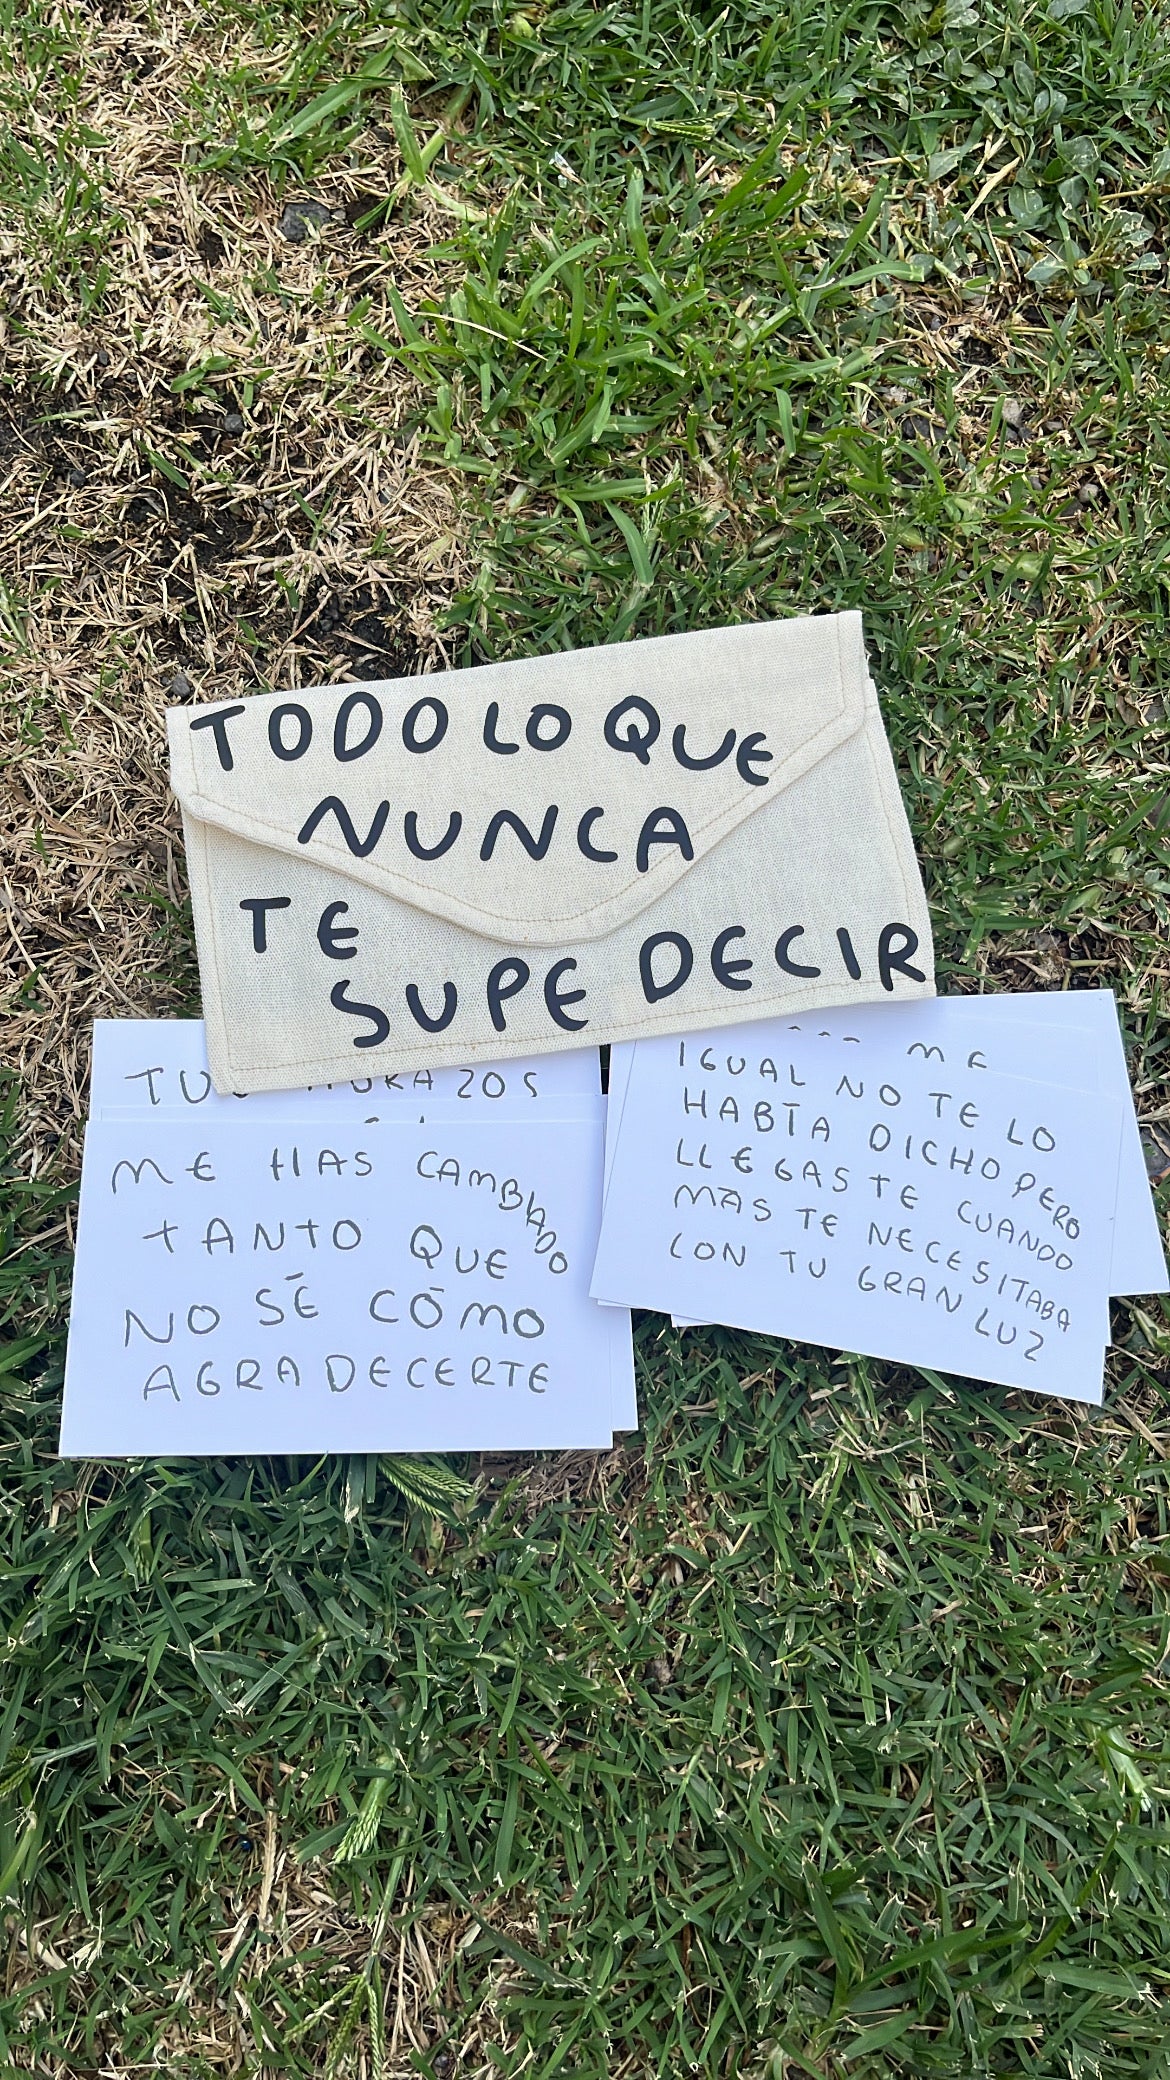 TODO LO QUE
NUNCA
TE
SUPE DECIR
ME HAS CAMBIADO
TANTO QUE
NO SÉ CÓMO
AGRADECERTE
ME
IGUAL NO TE LO
HABÍA DICHO PERO
LLEGASTE CUANDO
MÁS TE NECESITABA
CON TU GRAN LUZ